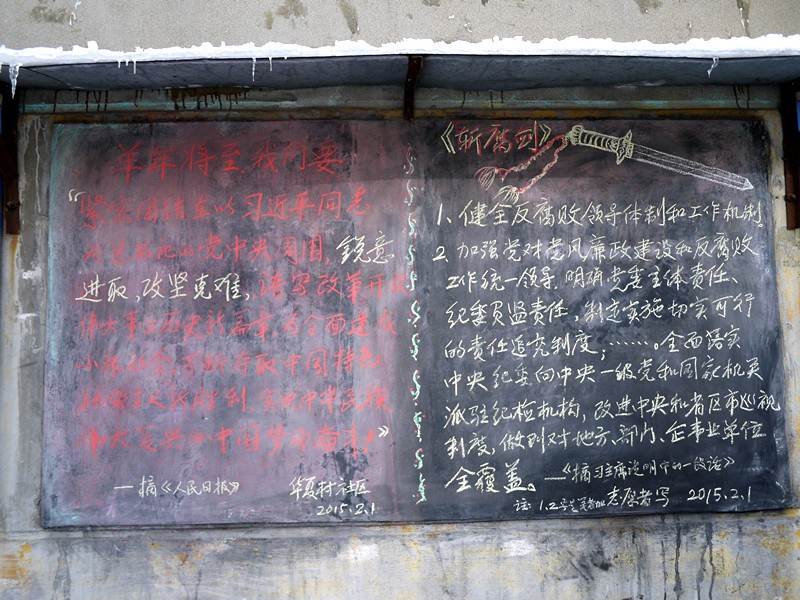 羊年将至,我们要
“紧密团结在以习近平同志
为总书记的党中央周围,锐意
进取,攻坚克难,谱写改革开放
伟大事业历史新篇章,为全面建成
小康社会,不断夺取中国特色
社会主义新胜利,实现中华民族
伟大复兴的中国梦而奋斗!”
—摘《人民日报》
华夏村社区
2015.2.1
《斩腐剑》
1、健全反腐败领导体制和工作机制
2、加强党对党风廉政建设和反腐败
工作统一领导,明确党委主体责任、
纪委监督责任,制定实施切实可行
的责任追究制度;……。全面落实
中央纪委向中央一级党和国家机关
派驻纪检机构,改进中央和省区市巡视
制度,做到对地方、部门、企事业单位
全覆盖。—《摘习主席说明中的一段话》
注:1.2号是
志愿者写 2015.2.1